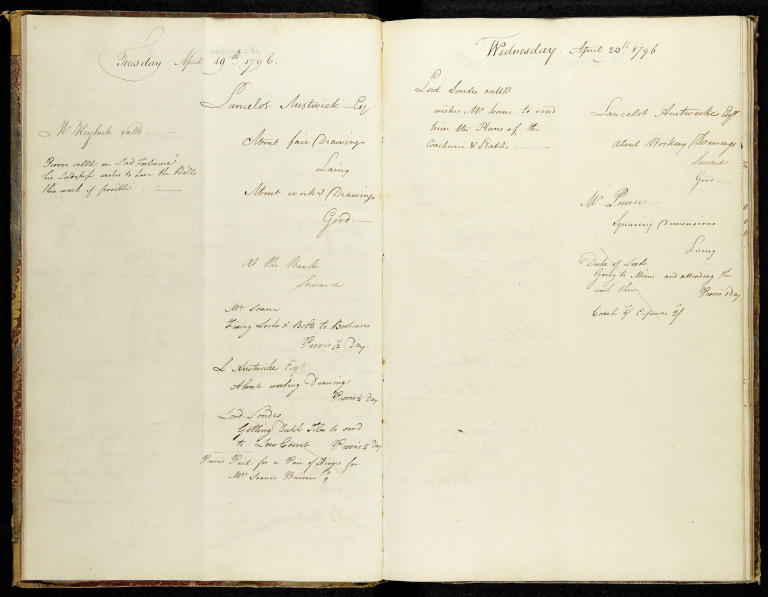 Tuesday April 19th 1796.
Mr Heylock call'd
Provis call'd on Lord
his Lordship wishes to have the Bells
this week if possible
Lancelot Austwick Esqr
About fair Drawings
Laing
About work'g Drawings
Good.
At the Bank
Seward
Mr Soane
Fixing Locks & Bolts to Bookcases
Provis ½ Day
L Austwicke Esqr
About working Drawings
Provis ¼ Day
Lord Sondes
Getting Dutch Tiles to send
to Lees Court Provis ¼ Day
Provis Paid for a Pair of Hinges for
Mrs Soanes Bureau
Wednesday April 20th 1796.
Lord Sondes call'd
wishes Mr Soane to send
him the Plans of the
Coachouse & Stables
Lancelot Austwicke Esqr
About Working Drawings
Seward
Good
Mr Peirse
Squaring Dimensions
Laing
Duke of Leeds
Going to Mims and attending the
work there Provis 1 day
Coach & Expences